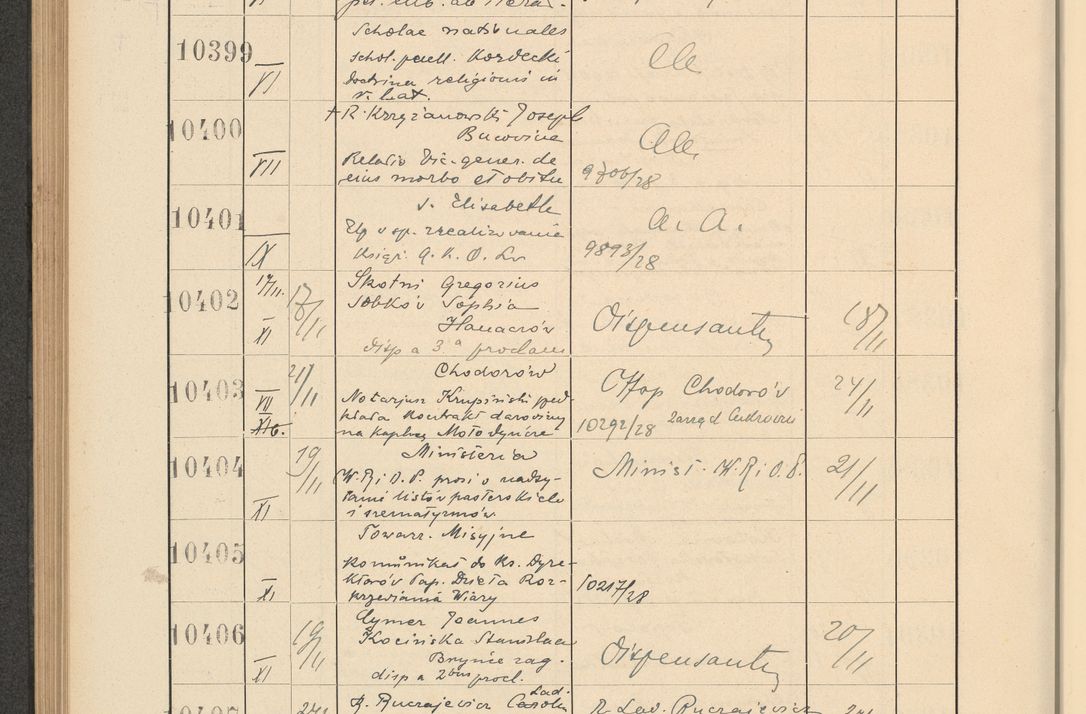 10399
VI
Scholae nationales
schol. puell. Kordecki
doctrina religionis in
v. Lat.
10400
VII
+ R. Krzyżanowski Joseph
Bucovina
Relatio Vic. gener. de
eius morbo et obitu
9706/28
10401
IX
s. Elisabeth
a. A.
9893/28
10402
17/11.
XI
17/11
Skotni Gregorius
Sobków Sophia
Hanaczów
disp a 3ª proclam
Dispensantur
18/11
10403
VII
21/11
Chodorów
Notarjusz Krupiński przed-
kłada kontrakt darowizny
na kaplicę Mołodyńcze
Chodorów
Zarząd Cukrowni
10292/28
24/11
10404
XI
19/11
Ministeria
W.R.i O.P. prosi o nadsy-
łanie listów pasterskich
i szematyzmów
Minist. W.R.i O.P.
21/11
10405
XI
Towarz. Misyjne
Komunikat do Ks. Dyre-
ktorów Pap. Dzieła Roz-
krzewiania Wiary
10217/28
10406
XI
19/11
Cymer Joannes
Kocińska Stanisława
Bryńce zag.
disp a 2bus procl.
Dispensantur
20/11